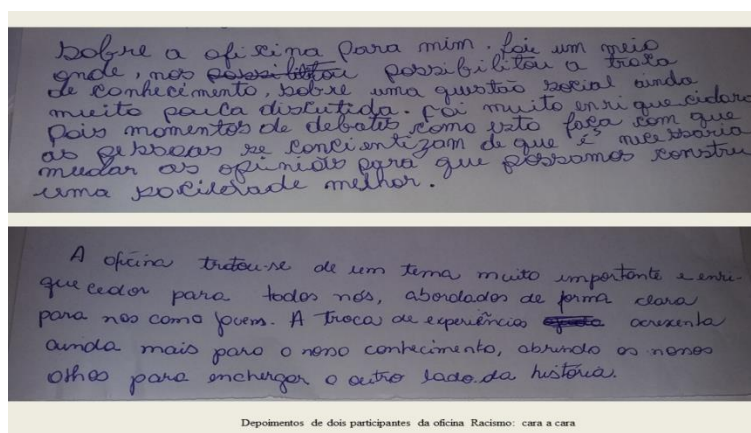 Sobre a oficina para mim. foi um meio
onde, nos possibilitou possibilitou a troca
de conhecimento, sobre uma questão social ainda
muito pouca discutida. foi muito enriquecidora
pois momentos de debates como isto faça com que
as pessoas se concientizam de que é necessaria
mudar as opiniões para que possamos constru
uma sociedade melhor.
A oficina tratou-se de um tema muito importante e enri-
quecedor para todos nós, abordados de forma clara
para nos como jovem. A troca de experiência acrexenta
ainda mais para o nosso conhecimento, abrindo os nossos
olhos para enchergar o outro lado da história.
Depoimentos de dois participantes da oficina Racismo: cara a cara